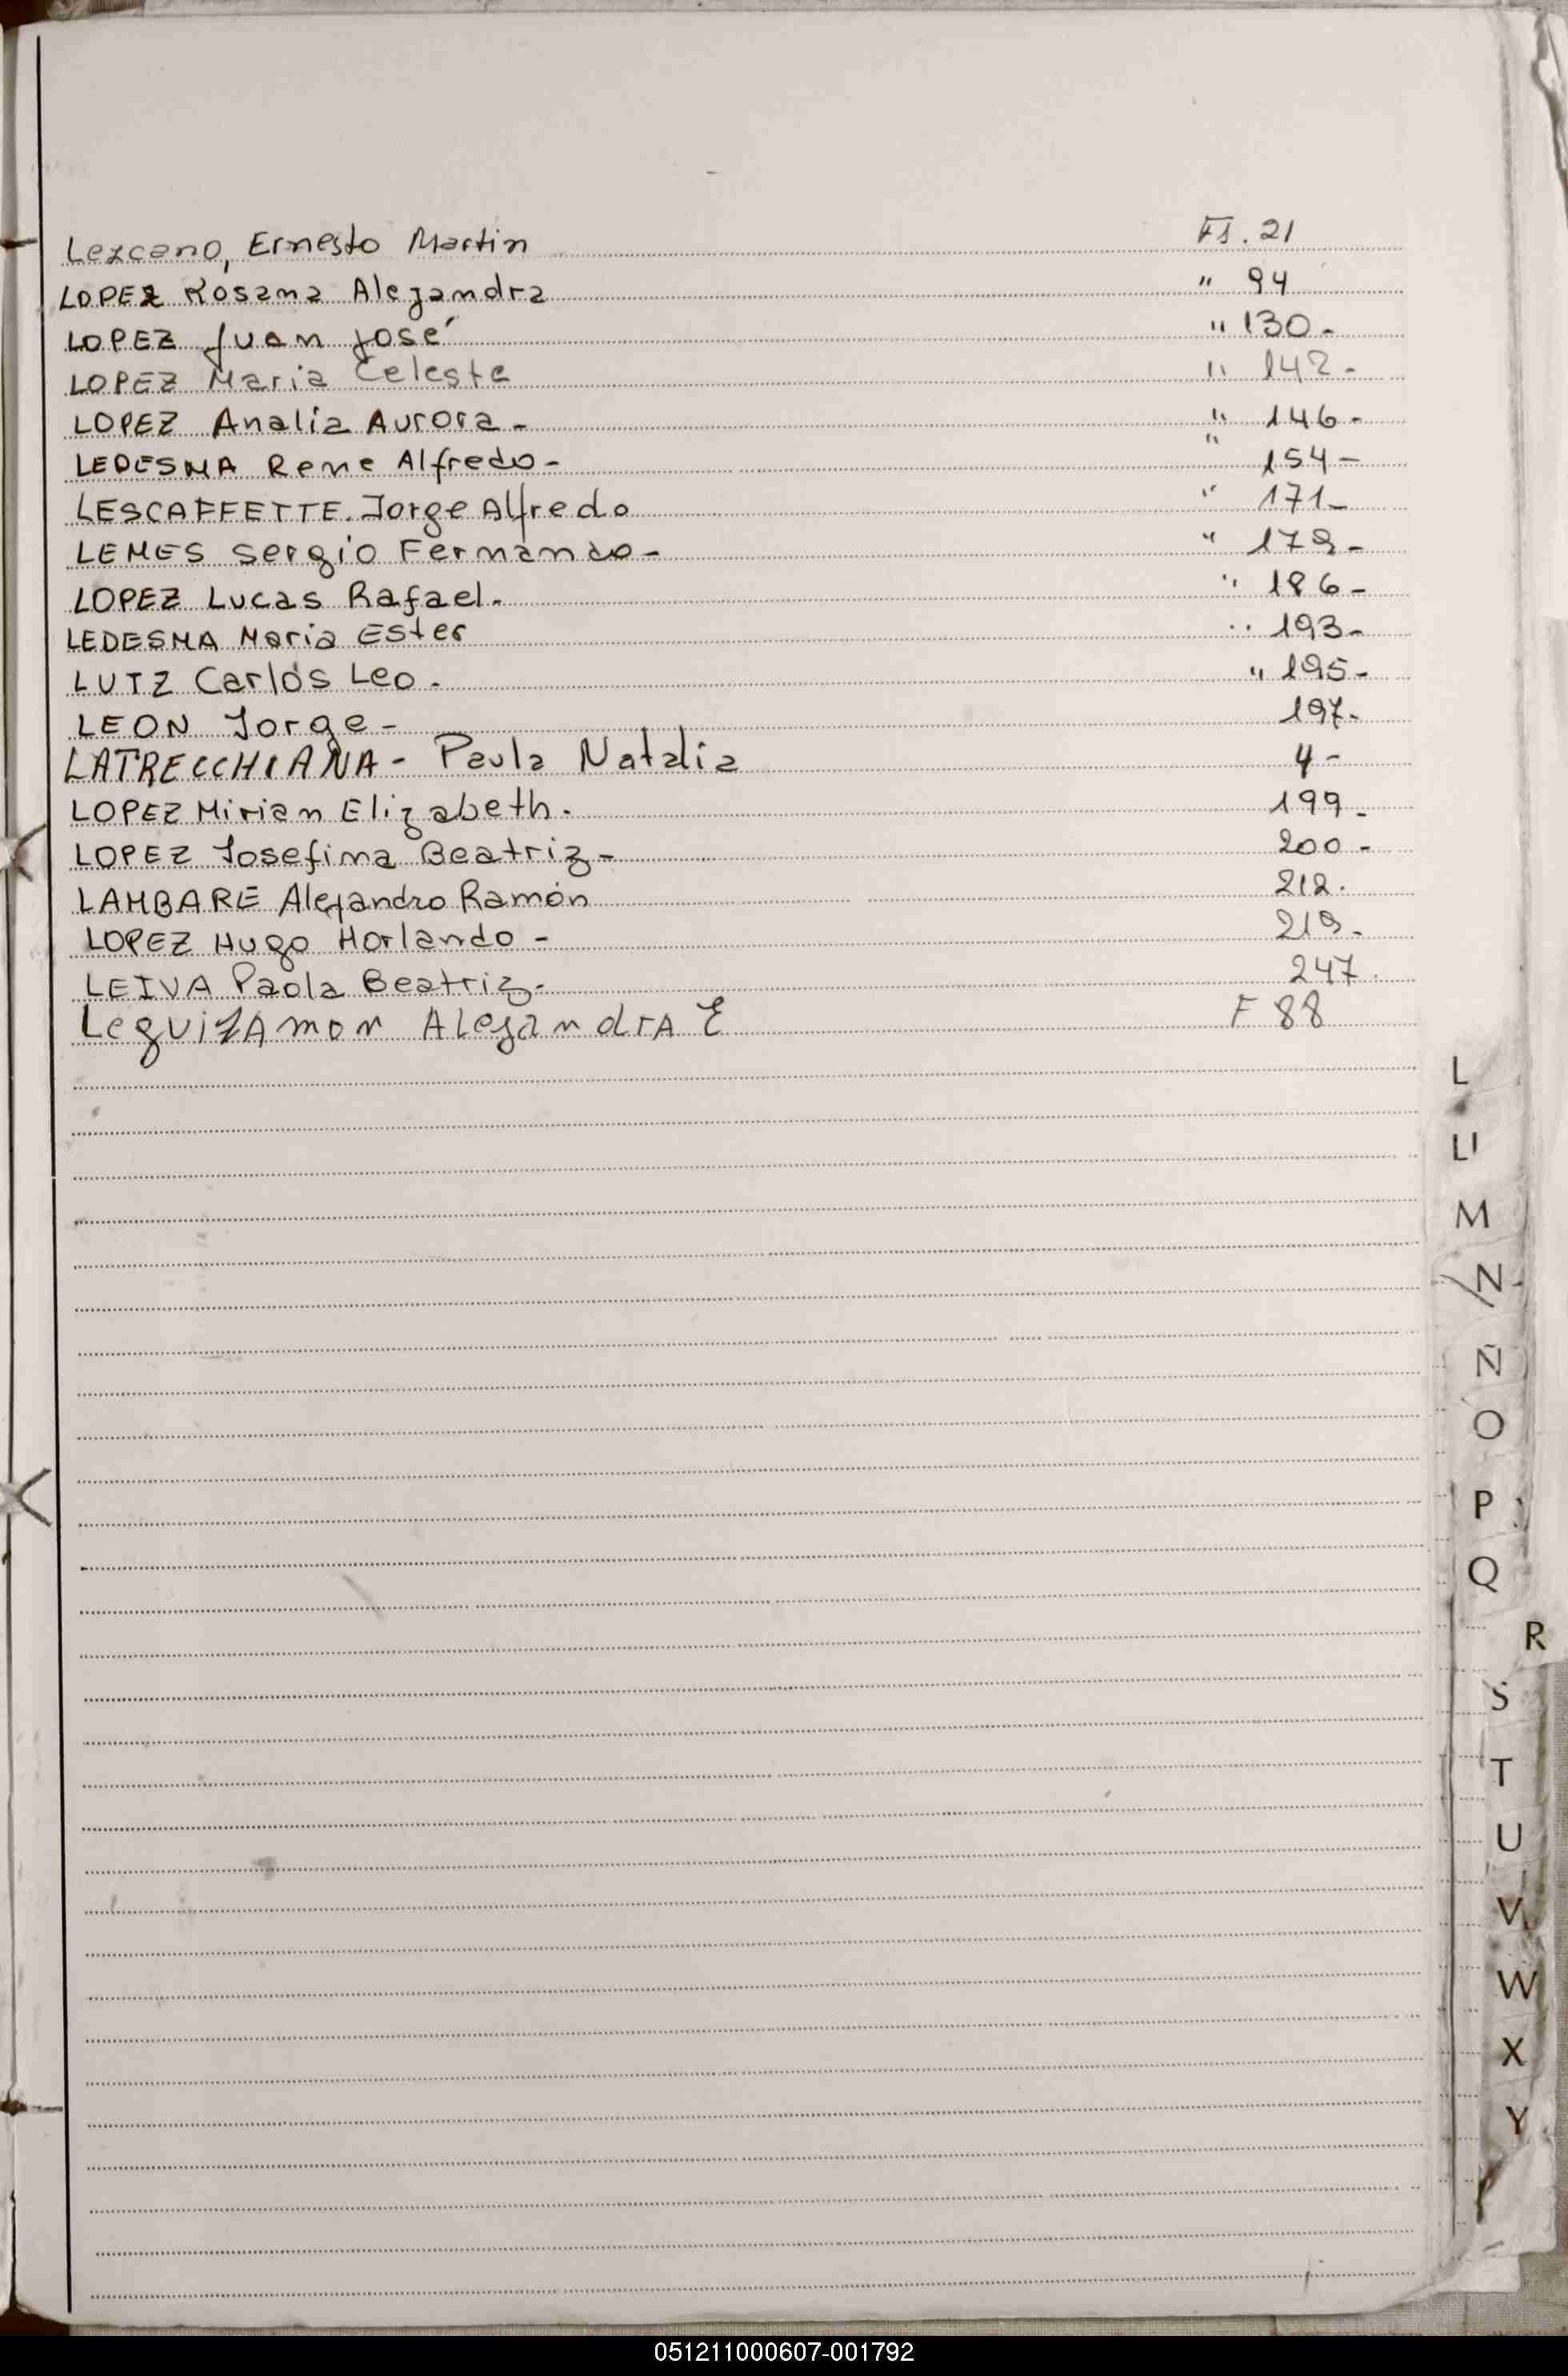 Lezcano, Ernesto Martin Fs. 21
LOPEZ Rosana Alejandra " 94
LOPEZ Juan José " 130-
LOPEZ Maria Celeste " 142-
LOPEZ Analia Aurora- " 146-
LEDESMA Rene Alfredo- " 154-
LESCAFFETTE. Jorge Alfredo " 171-
LEMES Sergio Fernando- " 179-
LOPEZ Lucas Rafael. " 186-
LEDESMA Maria Ester " 193-
LUTZ Carlos Leo. " 195-
LEON Jorge- 197-
LATRECCHIANA- Paula Natalia 4-
LOPEZ Mirian Elizabeth. 199-
LOPEZ Josefina Beatriz- 200-
LAMBARE Alejandro Ramón 212.
LOPEZ Hugo Horlando- 219-
LEIVA Paola Beatriz- 247.
LeguizAmon AlejandrA E F 88
L
Ll
M
N
Ñ
O
P
Q
R
S
T
U
V
W
X
Y
051211000607-001792